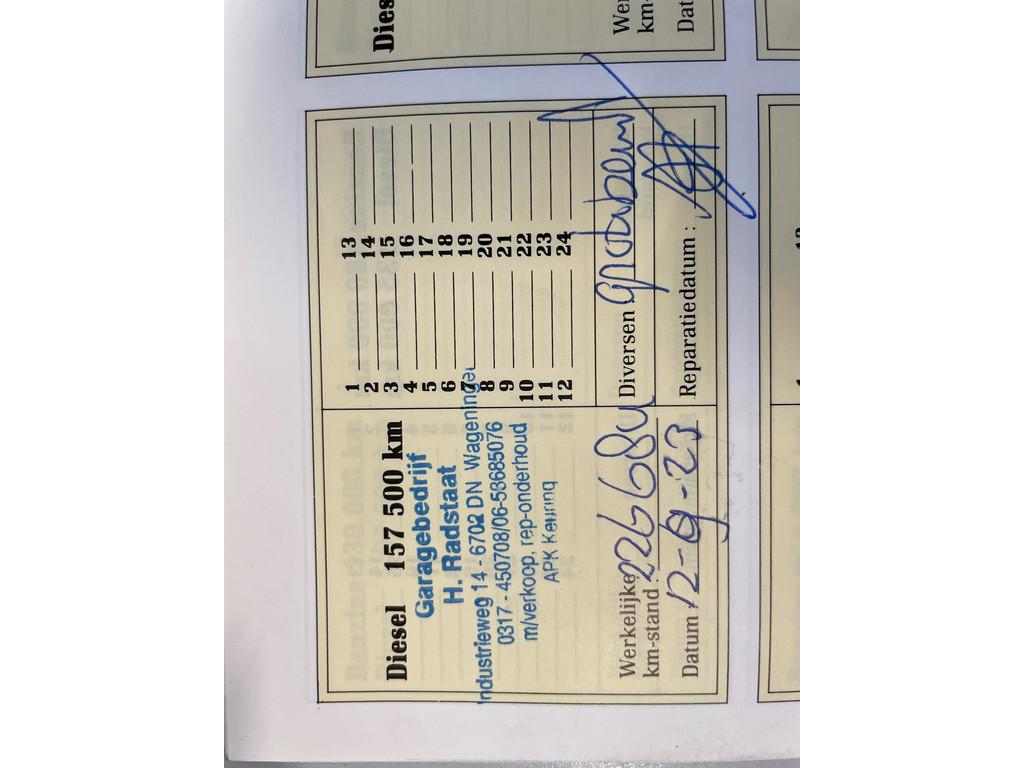 Dies
Wer
km-
Dat
Diesel 157 500 km
Garagebedrijf
H. Radstaat
Industrieweg 14 - 6702 DN Wageningen
0317 - 450708/06-53685076
m/verkoop, rep-onderhoud
APK Keuring
Werkelijke
km-stand 226684
Datum 12-9-23
1 13
2 14
3 15
4 16
5 17
6 18
7 19
8 20
9 21
10 22
11 23
12 24
Diversen grotebeurt
Reparatiedatum :